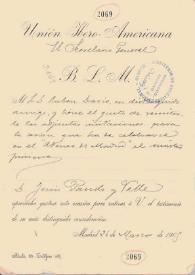 2069
Unión Ibero-Americana
El Secretario General
B. L. M.
Al S. D. Rubén Darío, su distinguido
amigo y tiene el gusto de remitir
le las adjuntas invitaciones para
la sesión que ha de celebrarse
en el Ateneo de Madrid el martes
próximo
D. Jesús Pando y Valle
aprovecha gustoso esta ocasión para reiterar á V. el testimonio
de su más distinguida consideración.
Madrid 31 de Marzo de 1905
2069